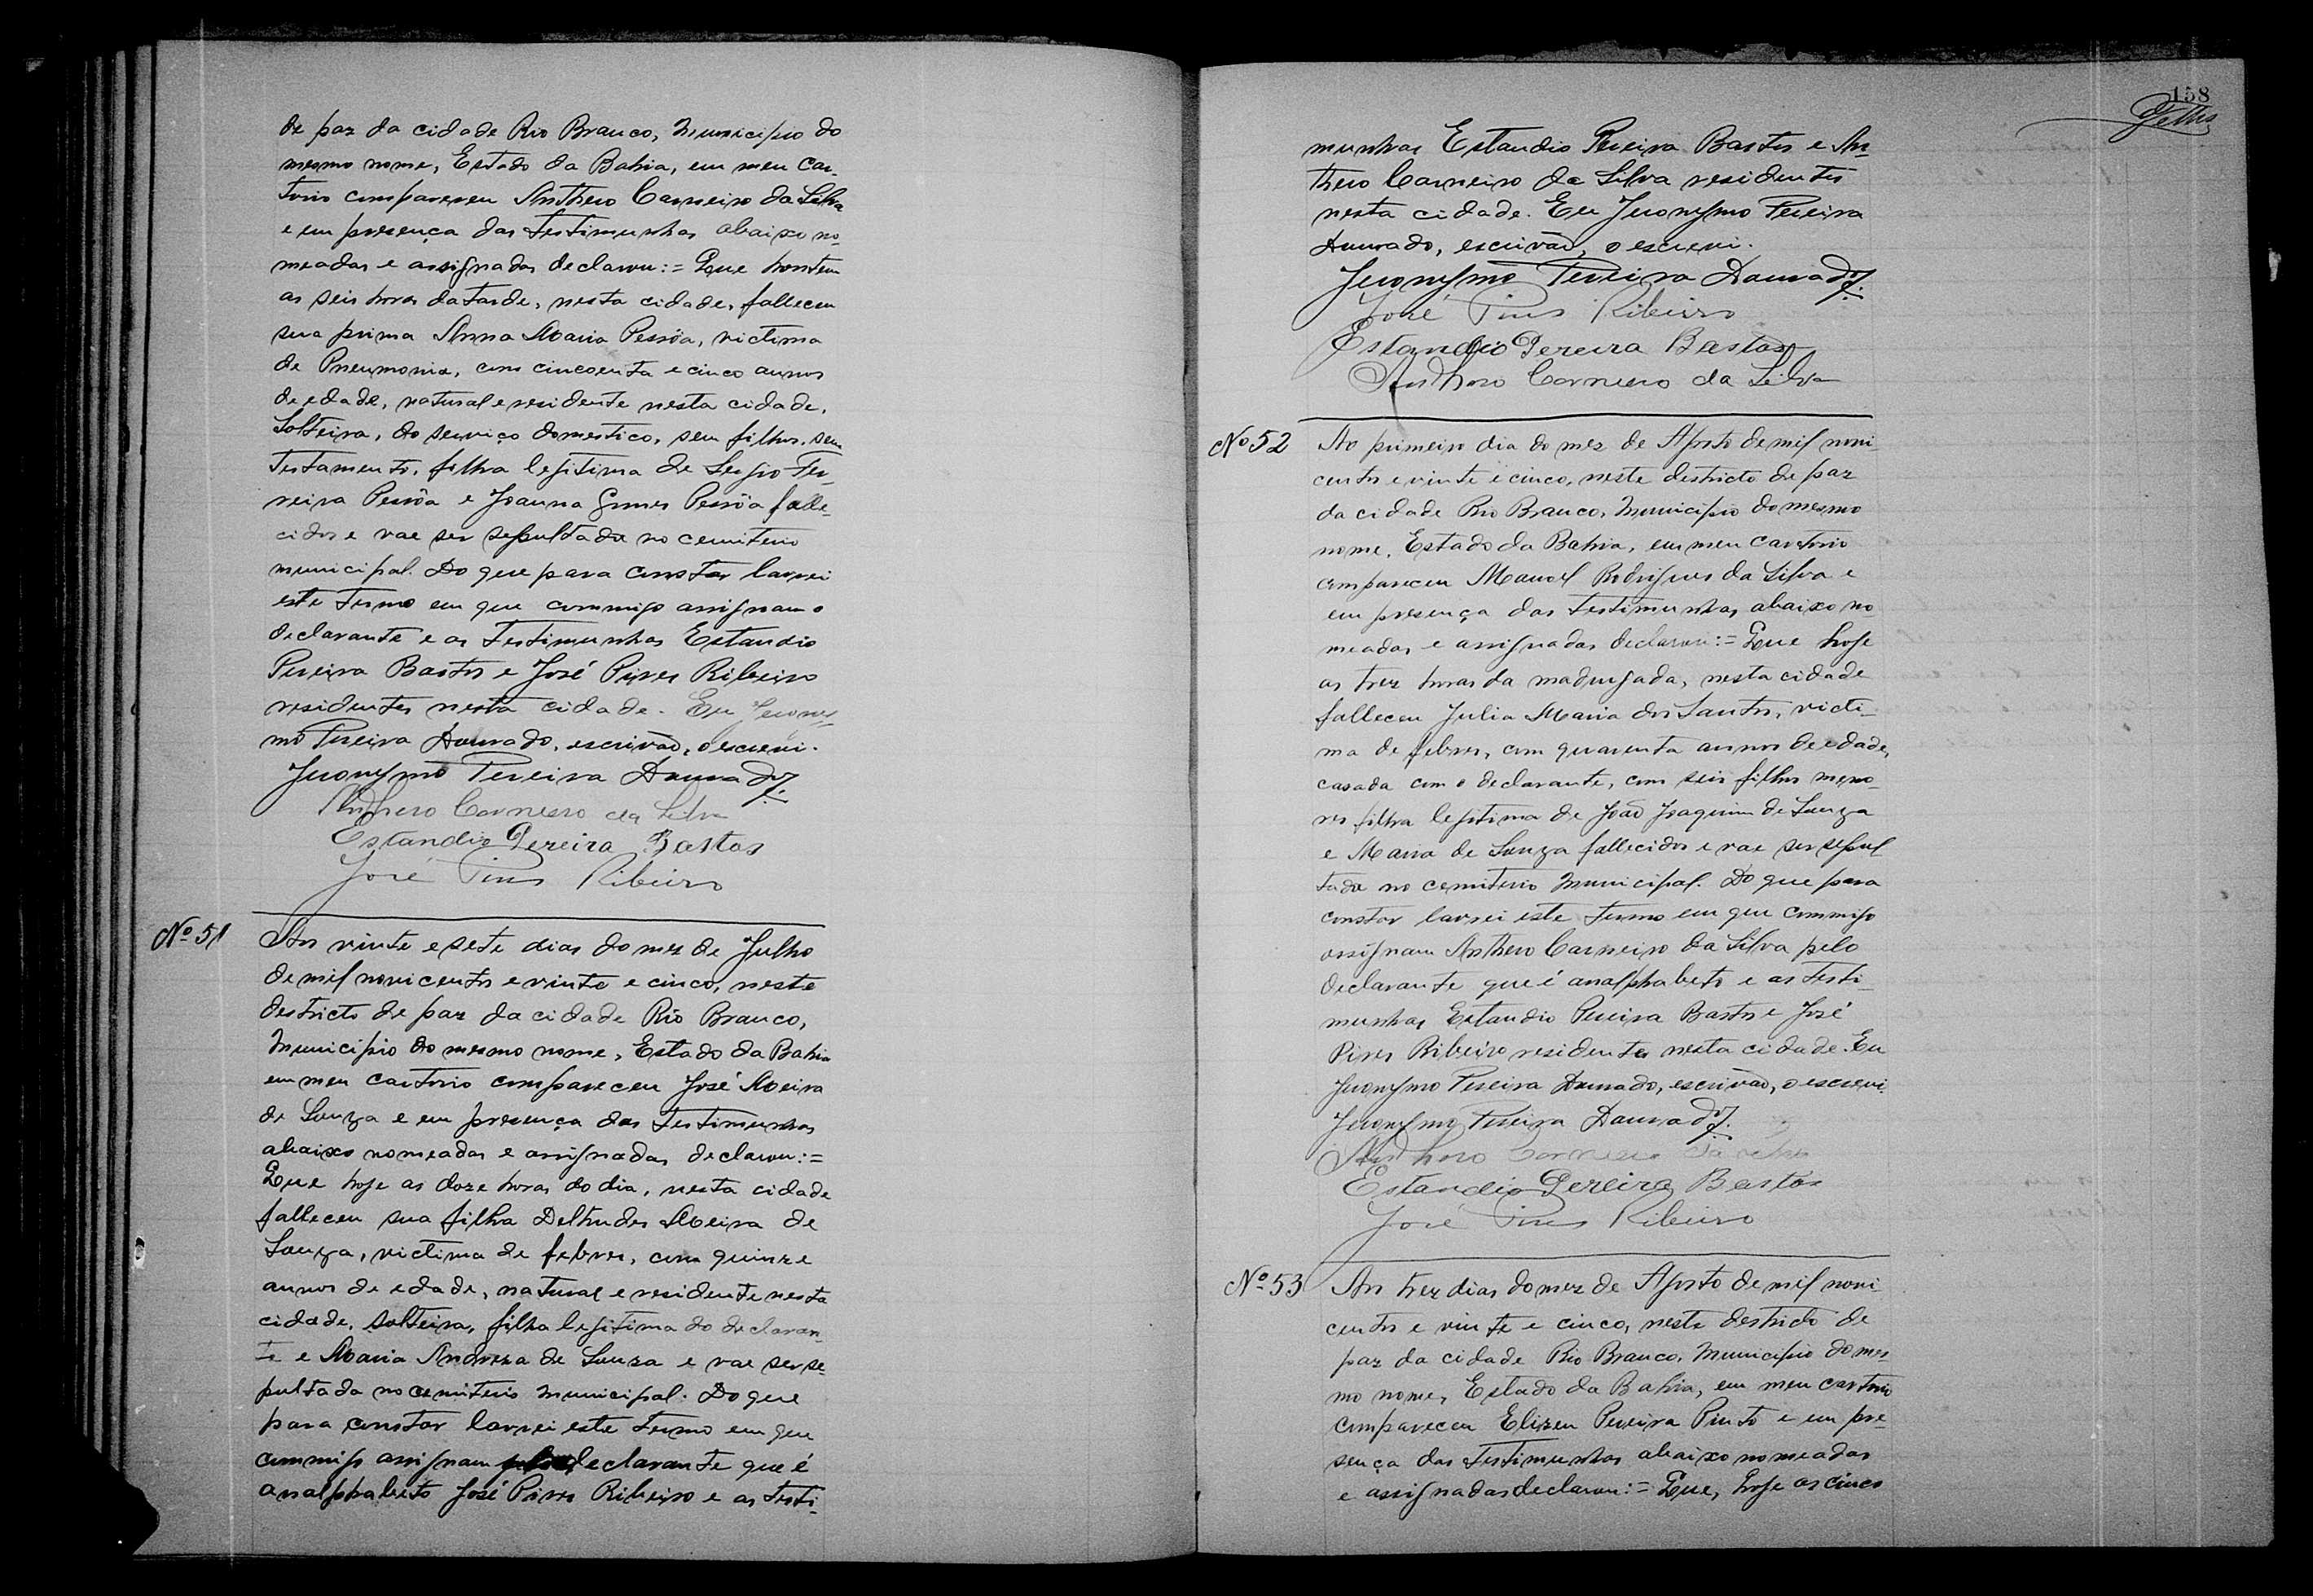 de paz da cidade Rio Branco, Municipio do
mesmo nome, Estado da Bahia, em meu car-
torio compareceu Anthero Carneiro da Silva
e em presença das testimunhas abaixo no-
meadas e assignadas declarou:= Que hontem
as seis horas da tarde, nesta cidade, falleceu
sua prima Anna Maria Pessôa, victima
de Pneumonia, com cincoenta e cinco annos
de edade, natural e residente nesta cidade,
Solteira, do serviço domestico, sem filhos, sem
testamento, filha legitima de Sergio Fer-
reira Pessôa e Joanna Gomes Pessôa falle-
cidos e vae ser sepultada no cemiterio
municipal. Do que para constar lavrei
este termo em que commigo assignam o
declarante e as testimunhas Estandio
Pereira Bastos e José Pires Ribeiro
residentes nesta cidade. Eu Jerony-
mo Pereira Dourado, escrivão, o escrevi.
Jeronymo Pereira Dourado
Anthero Carneiro da Silva
Estandio Pereira Bastos
José Pires Ribeiro
Nº 51 Aos vinte e sete dias do mez de Julho
de mil novicentos e vinte e cinco, neste
destricto de paz da cidade Rio Branco,
Municipio do mesmo nome, Estado da Bahia
em meu cartorio compareceu José Meira
de Souza e em presença das testimunhas
abaixo nomeadas e assignadas declarou:=
Que hoje as doze horas do dia, nesta cidade
falleceu sua filha Deltrudes Meira de
Souza, victima de febres, com quinze
annos de edade, natural e residente nesta
cidade, solteira, filha legitima do declaran-
te e Maria Andreza de Souza e vae ser se-
pultada no cemiterio Municipal. Do que
para constar lavrei este termo em que
commigo assignam pelo declarante que é
analphabeto José Pires Ribeiro e as testi-
158
munhas Estandio Pereira Bastos e An-
thero Carneiro da Silva residentes
nesta cidade. Eu Jeronymo Pereira
Dourado, escrivão, o escrevi.
Jeronymo Pereira Dourado
José Pires Ribeiro
Estandio Pereira Bastos
Anthero Carneiro da Silva
Nº 52 Ao primeiro dia do mez de Agosto de mil novi-
centos e vinte e cinco, neste destricto de paz
da cidade Rio Branco, Municipio do mesmo
nome, Estado da Bahia, em meu cartorio
compareceu Manoel Rodrigues da Silva e
em presença das testimunhas abaixo no-
meadas e assignadas declarou:= Que hoje
as trez horas da madrugada, nesta cidade
falleceu Julia Maria dos Santos, victi-
ma de febres, com quarenta annos de edade,
casada com o declarante, com seis filhos meno-
res filha legitima de João Joaquim de Souza
e Maria de Souza fallecidos e vae ser sepul
tada no cemiterio Municipal. Do que para
constar lavrei este termo em que commigo
assignam Anthero Carneiro da Silva pelo
declarante que é analphabeto e as testi-
munhas Estandio Pereira Bastos e José
Pires Ribeiro residentes nesta cidade. Eu
Jeronymo Pereira Dourado, escrivão, o escrevi.
Jeronymo Pereira Dourado
Anthero Carneiro da Silva
Estandio Pereira Bastos
José Pires Ribeiro
Nº 53 Aos trez dias do mez de Agosto de mil novi-
centos e vinte e cinco, neste destricto de
paz da cidade Rio Branco, Municipio do mes-
mo nome, Estado da Bahia, em meu cartorio
compareceu Elizeu Pereira Pinto e em pre-
sença das testimunhas abaixo nomeadas
e assignadas declarou:= Que, hoje as cinco